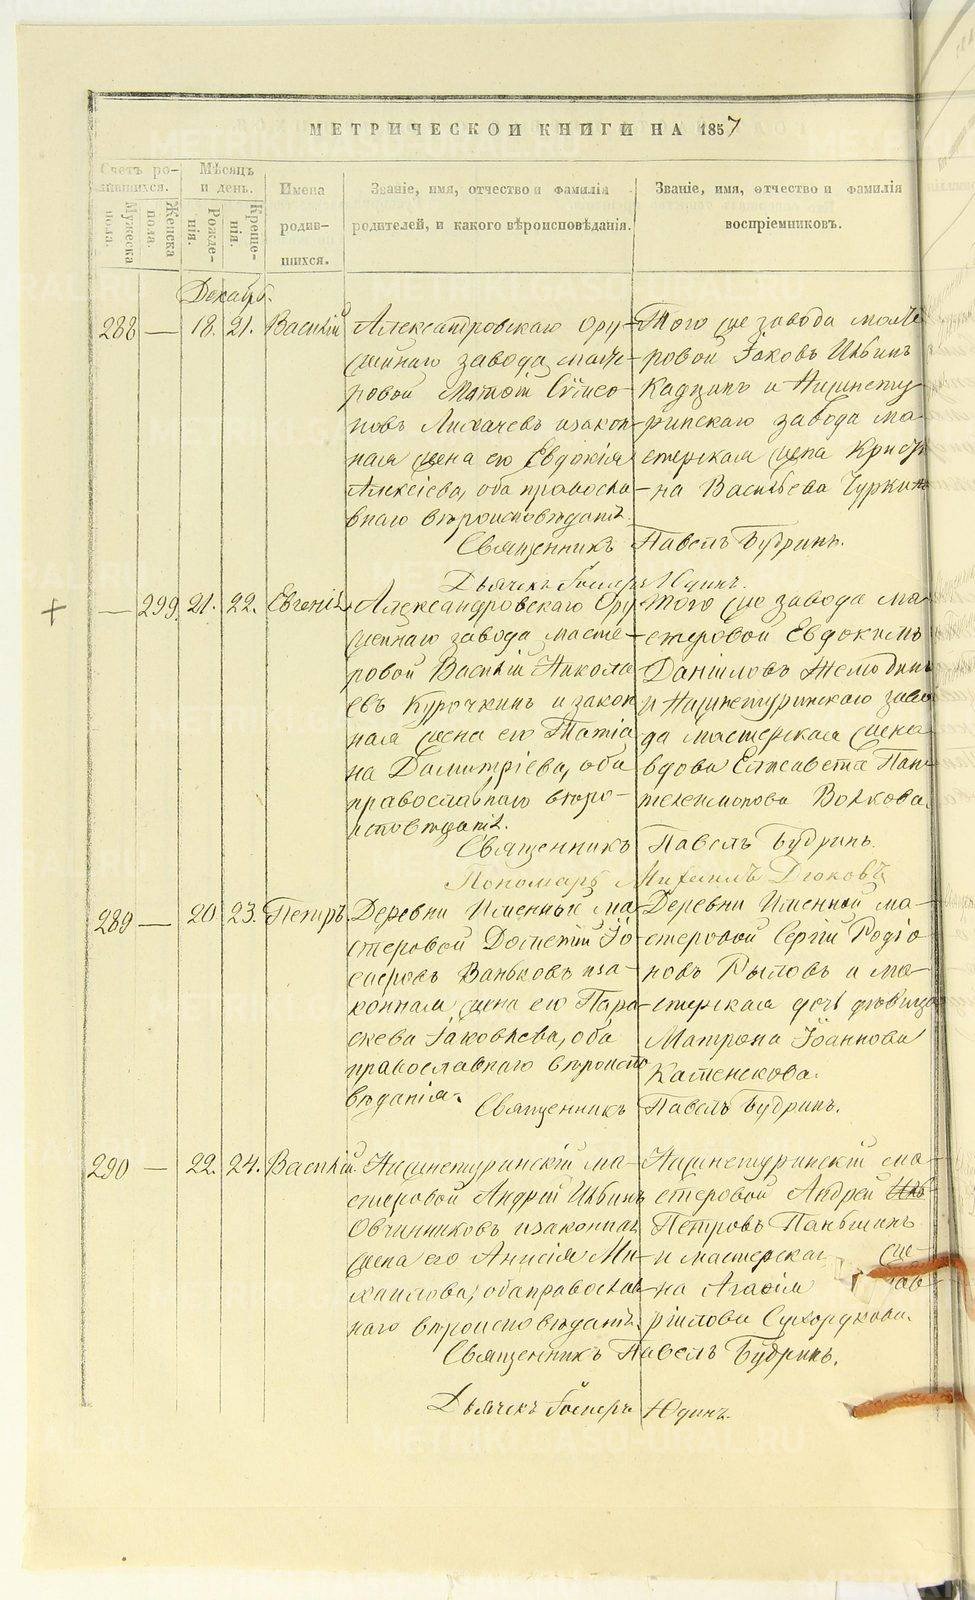 МЕТРИЧЕСКОЙ КНИГИ НА 1857
Счетъ ро-
дившихся.
Мужеска
пола.
Женска
пола.
Мѣсяцъ
и день.
Рожде-
нія.
Креще-
нія.
Имена
родив-
шихся.
Званіе, имя, отчество и фамилія
родителей, и какого вѣроисповѣданія.
Званіе, имя, отчество и фамилія
воспріемниковъ.
Декабр.
288 — 18. 21. Василій
Александровскаго Ору-
жейнаго завода масте-
ровой
новъ Лихачевъ и закон-
ная жена его Евдокія
Алексіева, оба правосла-
внаго вѣроисповѣданія.
Того же завода масте-
ровой Іаковъ Ильинъ
и Нижнету-
ринскаго завода ма-
стерская жена
на Васильева
Священникъ Павелъ Будринъ.
Дьячекъ Юдинъ.
— 299. 21. 22. Евгенія
Александровскаго Ору-
жейнаго завода масте-
ровой Василій Никола-
евъ Курочкинъ и закон-
ная жена его Татіа-
на Димитріева, оба
православнаго вѣро-
исповѣданія.
Того же завода ма-
стеровой Евдокимъ
Даніиловъ
и Нижнетуринскаго заво-
да мастерская жена
вдова Елисавета Пан-
телеимонова Волкова.
Священникъ Павелъ Будринъ.
Пономарь Михаилъ Дюковъ
289 — 20. 23. Петръ.
Деревни Именной ма-
стеровой Дометій Іо-
сифовъ Ваньковъ и за-
конная жена его Пара-
скева Іаковлева, оба
православнаго вѣроиспо-
вѣданія.
Деревни Именной ма-
стеровой Сергій Родіо-
новъ Рыловъ и ма-
стерская дочь дѣвица
Матрона Іоаннова
Каменскова.
Священникъ Павелъ Будринъ.
290 — 22. 24. Василій.
Нижнетуринскій ма-
стеровой Андрей Ильинъ
Овчинниковъ и законная
жена его Анисія Ми-
хаилова, оба православ-
наго вѣроисповѣданія.
Нижнетуринскій ма-
стеровой Андрей
Петровъ Паньшинъ
и мастерская же-
на Агафія Гав-
ріилова Сухорукова.
Священникъ Павелъ Будринъ.
Дьячекъ Юдинъ.
METRIKI.GASO-URAL.RU